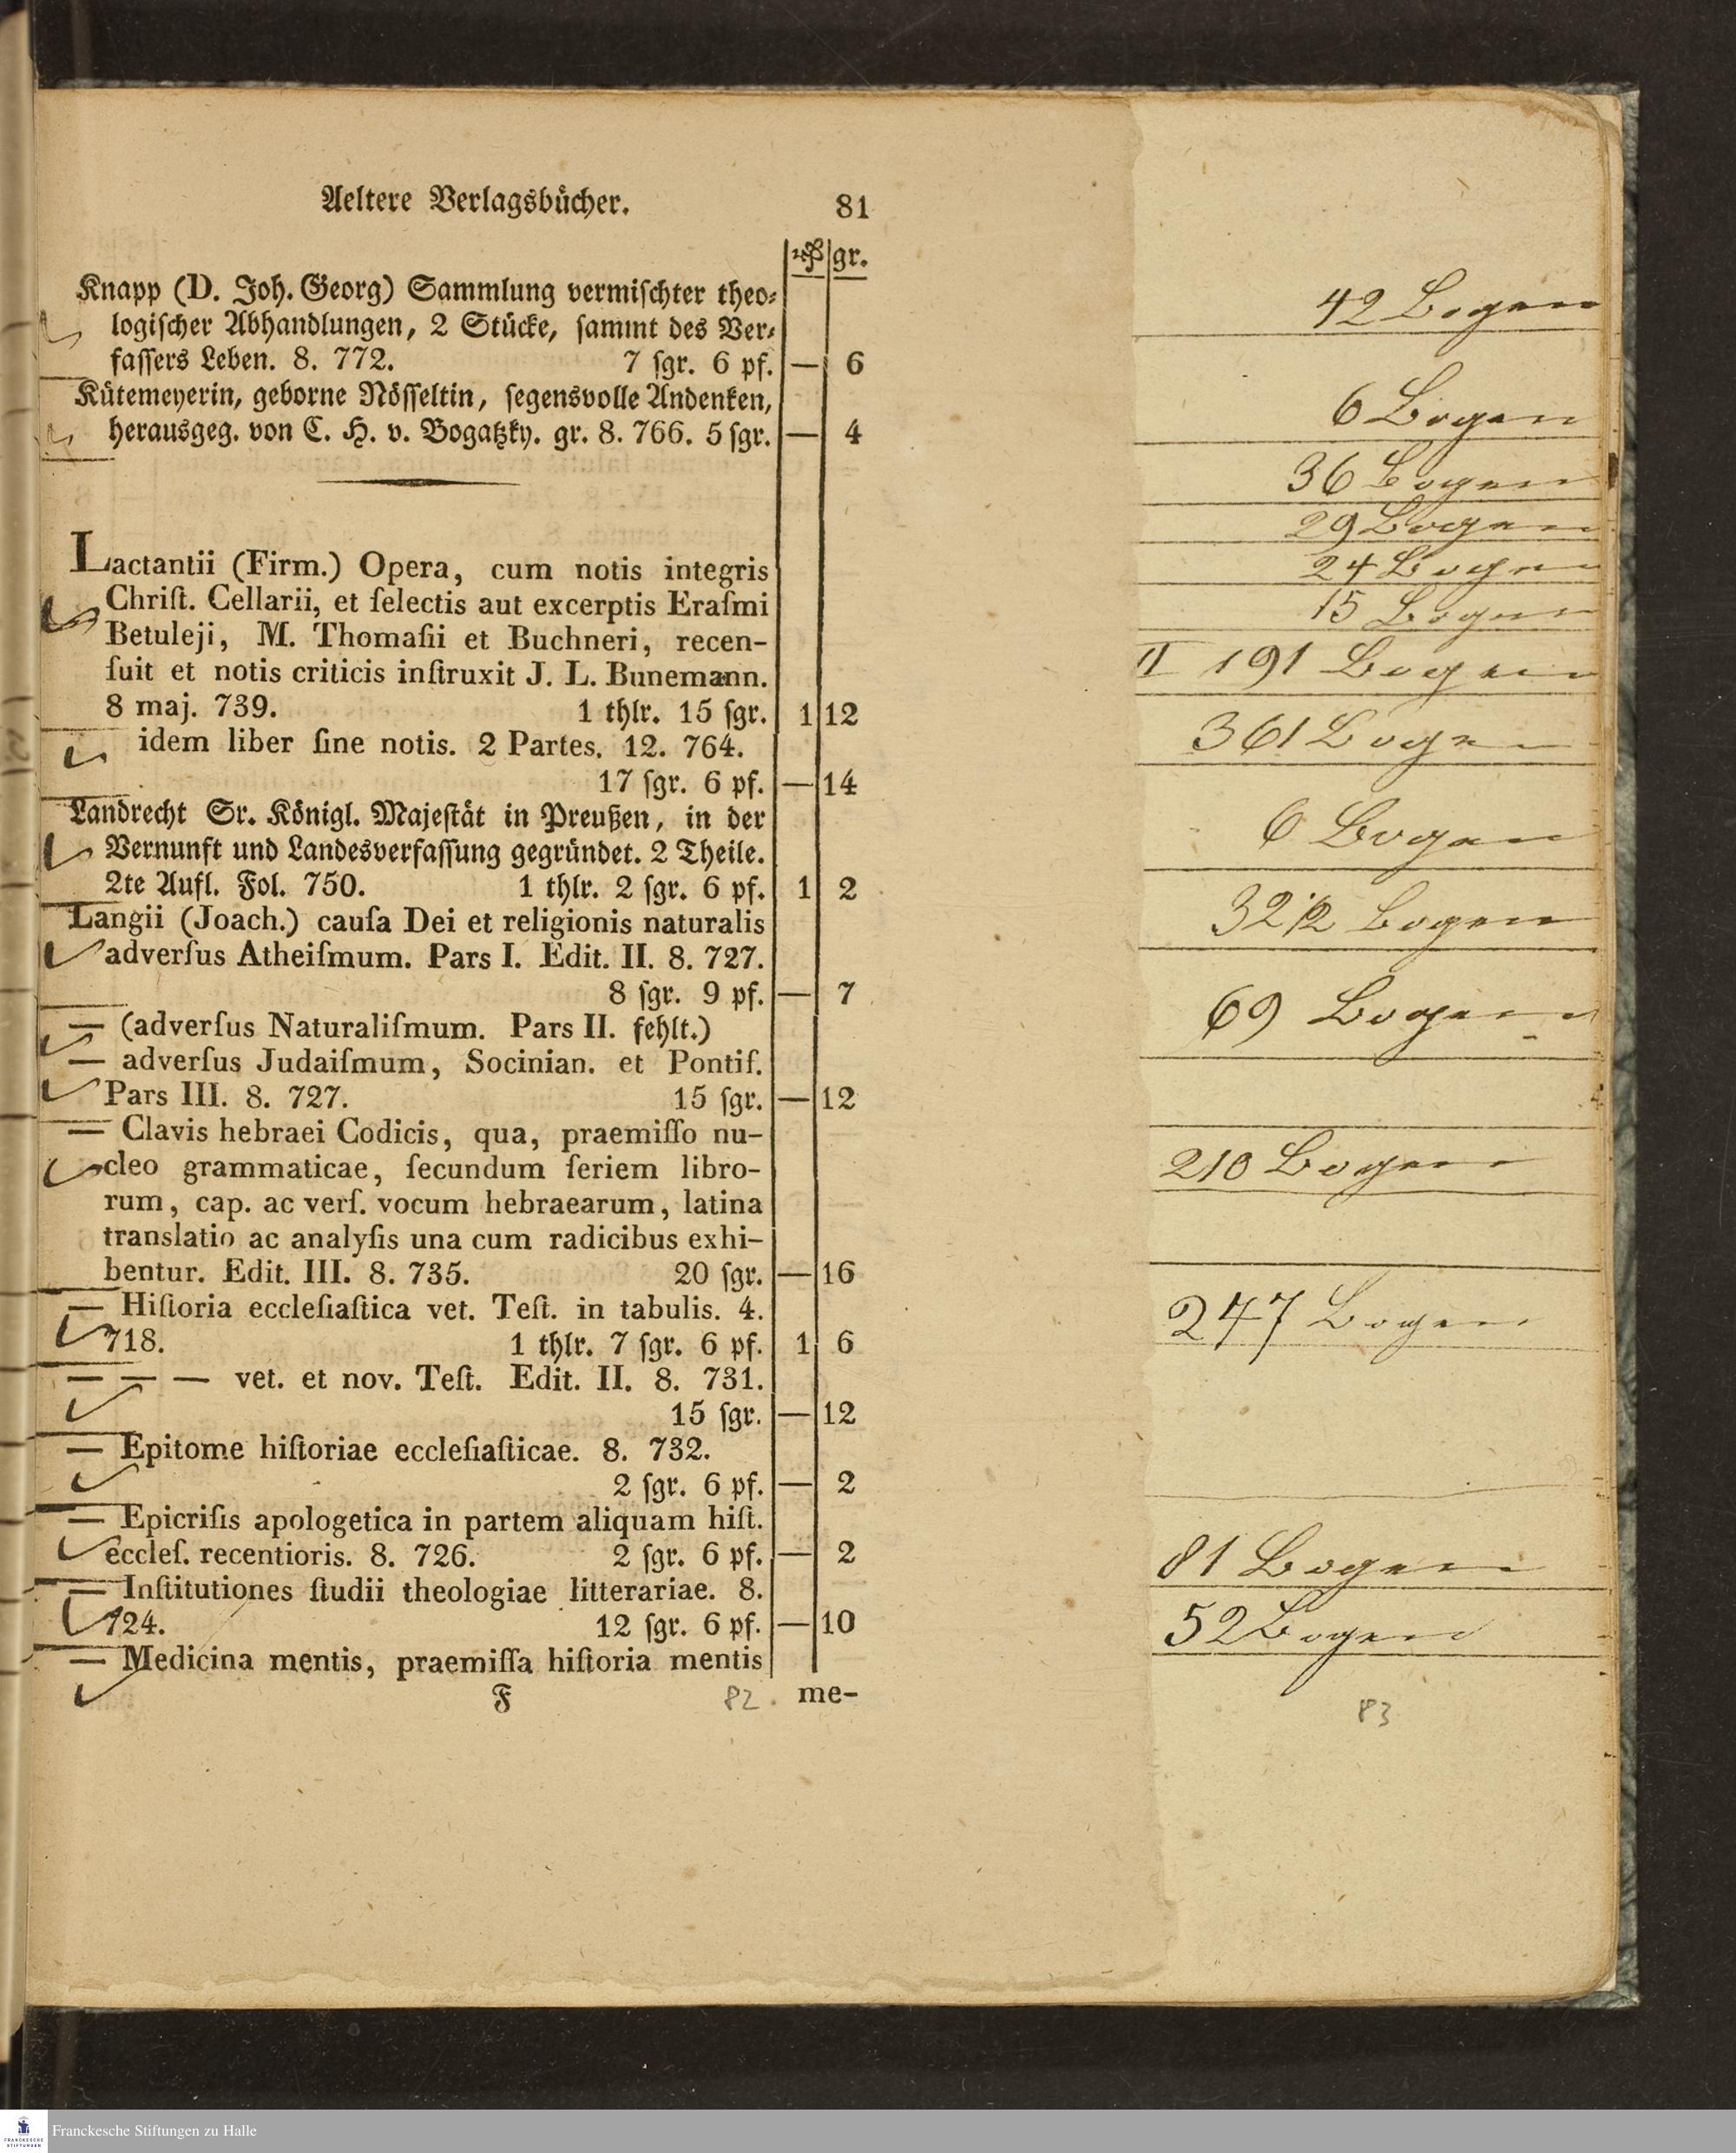 Aeltere Verlagsbücher. 81
rthlr gr.
Knapp (D. Joh. Georg) Sammlung vermiſchter theo⸗
logiſcher Abhandlungen, 2 Stücke, ſammt des Ver⸗
faſſers Leben. 8. 772. 7 ſgr. 6 pf. — 6
Kütemeyerin, geborne Nöſſeltin, ſegensvolle Andenken,
herausgeg. von C. H. v. Bogatzky. gr. 8. 766. 5 ſgr. — 4
Lactantii (Firm.) Opera, cum notis integris
Chriſt. Cellarii, et ſelectis aut excerptis Eraſmi
Betuleji, M. Thomaſii et Buchneri, recen-
ſuit et notis criticis inſtruxit J. L. Bunemann.
8 maj. 739. 1 thlr. 15 ſgr. 1 12
idem liber ſine notis. 2 Partes. 12. 764.
17 ſgr. 6 pf. — 14
Landrecht Sr. Königl. Majeſtät in Preußen, in der
Vernunft und Landesverfaſſung gegründet. 2 Theile.
2te Aufl. Fol. 750. 1 thlr. 2 ſgr. 6 pf. 1 2
Langii (Joach.) cauſa Dei et religionis naturalis
adverſus Atheiſmum. Pars I. Edit. II. 8. 727.
8 ſgr. 9 pf. — 7
— (adverſus Naturaliſmum. Pars II. fehlt.)
— adverſus Judaiſmum, Socinian. et Pontif.
Pars III. 8. 727. 15 ſgr. — 12
— Clavis hebraei Codicis, qua, praemiſſo nu-
cleo grammaticae, ſecundum ſeriem libro-
rum, cap. ac verſ. vocum hebraearum, latina
translatio ac analyſis una cum radicibus exhi-
bentur. Edit. III. 8. 735. 20 ſgr. — 16
— Hiſtoria eccleſiaſtica vet. Teſt. in tabulis. 4.
718. 1 thlr. 7 ſgr. 6 pf. 1 6
— — — vet. et nov. Teſt. Edit. II. 8. 731.
15 ſgr. — 12
— Epitome hiſtoriae eccleſiaſticae. 8. 732.
2 ſgr. 6 pf. — 2
— Epicriſis apologetica in partem aliquam hiſt.
eccleſ. recentioris. 8. 726. 2 ſgr. 6 pf. — 2
— Inſtitutiones ſtudii theologiae litterariae. 8.
724. 12 ſgr. 6 pf. — 10
— Medicina mentis, praemiſſa hiſtoria mentis
F 82. me-
42 Bogen
6 Bogen
36 Bogen
29 Bogen
24 Bogen
15 Bogen
II 191 Bogen
361 Bogen
6 Bogen
32 1/2 Bogen
69 Bogen
210 Bogen
247 Bogen
81 Bogen
52 Bogen
83
Franckesche Stiftungen zu Halle
FRANCKESCHE
STIFTUNGEN